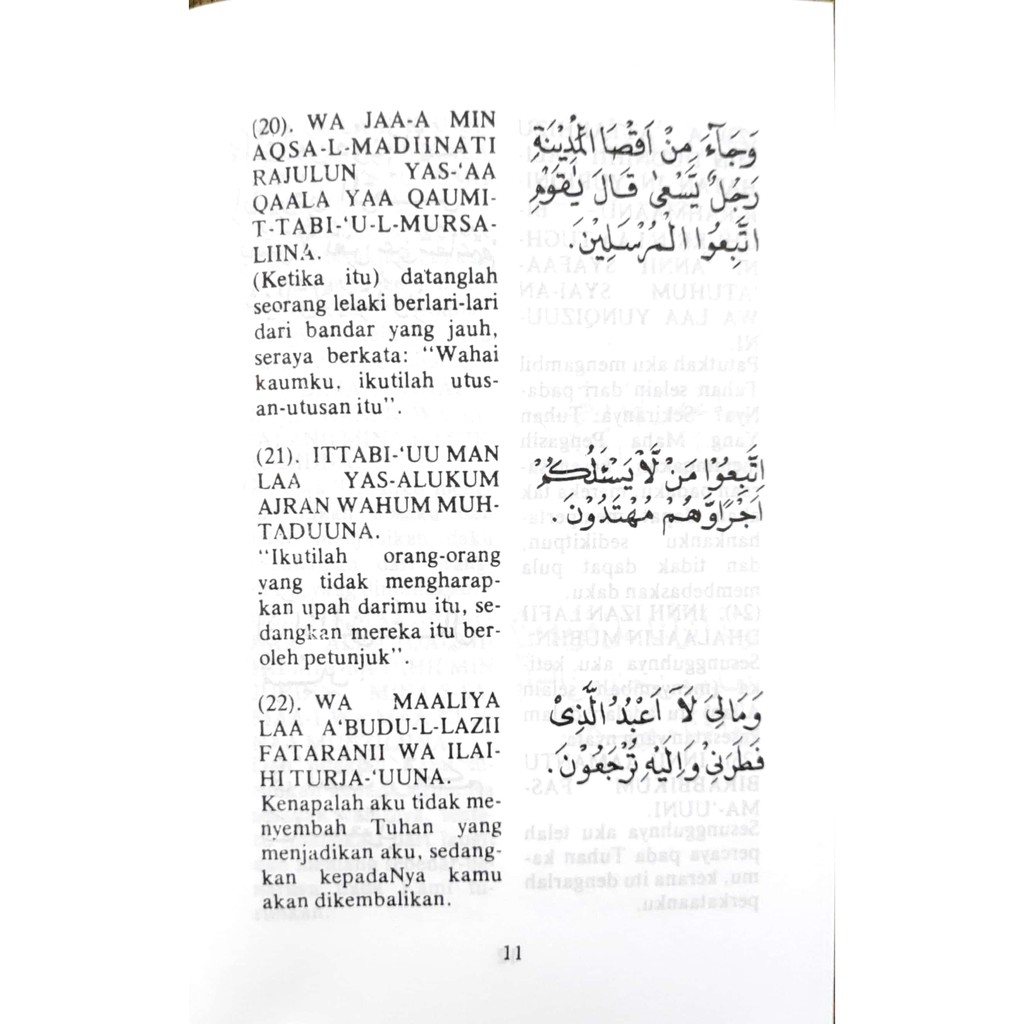 (20). WA JAA-A MIN
AQSA-L-MADIINATI
RAJULUN YAS-'AA
QAALA YAA QAUMI-
T-TABI-'U-L-MURSA-
LIINA.
(Ketika itu) datanglah
seorang lelaki berlari-lari
dari bandar yang jauh,
seraya berkata: "Wahai
kaumku, ikutilah utus-
an-utusan itu".
وَجَآءَ مِنْ اَقْصَا الْمَدِيْنَةِ
رَجُلٌ يَّسْعٰى قَالَ يٰقَوْمِ
اتَّبِعُوا الْمُرْسَلِيْنَ.
(21). ITTABI-'UU MAN
LAA YAS-ALUKUM
AJRAN WAHUM MUH-
TADUUNA.
"Ikutilah orang-orang
yang tidak mengharap-
kan upah darimu itu, se-
dangkan mereka itu ber-
oleh petunjuk".
اتَّبِعُوْا مَنْ لَّا يَسْـَٔلُكُمْ
اَجْرًا وَّهُمْ مُهْتَدُوْنَ.
(22). WA MAALIYA
LAA A'BUDU-L-LAZII
FATARANII WA ILAI-
HI TURJA-'UUNA.
Kenapalah aku tidak me-
nyembah Tuhan yang
menjadikan aku, sedang-
kan kepadaNya kamu
akan dikembalikan.
وَمَالِيَ لَآ اَعْبُدُ الَّذِيْ
فَطَرَنِيْ وَاِلَيْهِ تُرْجَعُوْنَ.
11